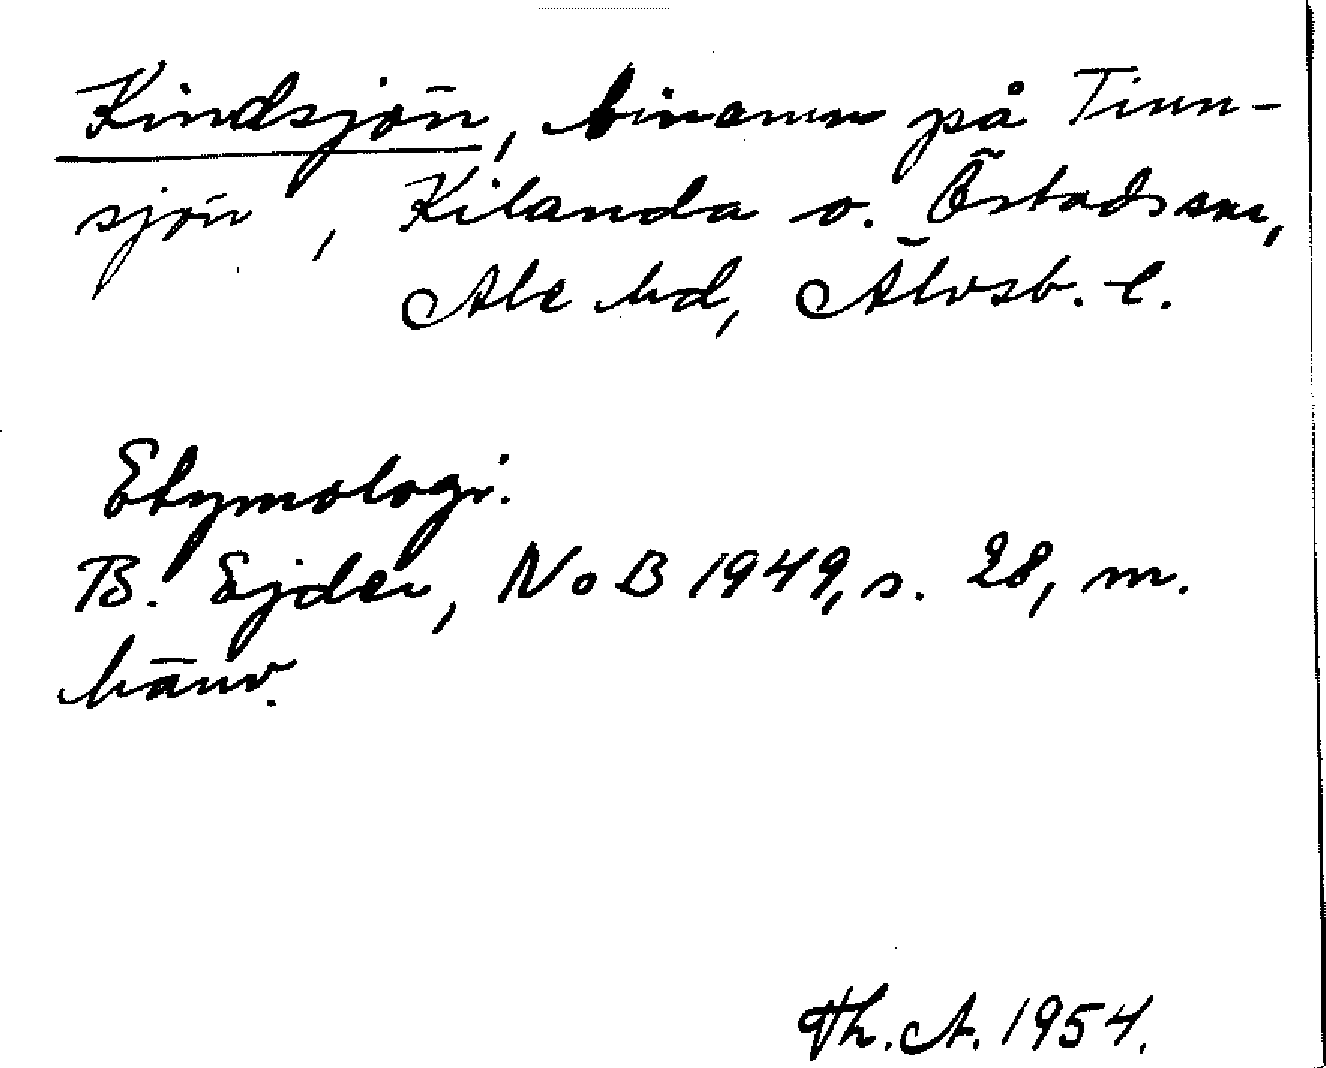 Kindsjön, binamn på Tinn-
sjön, Kilanda o. Östads snr,
Ale hd, Älvsb. l.
Etymologi.
B. Ejder, NoB 1949, s. 28, m.
hänv.
Th. A. 1954.